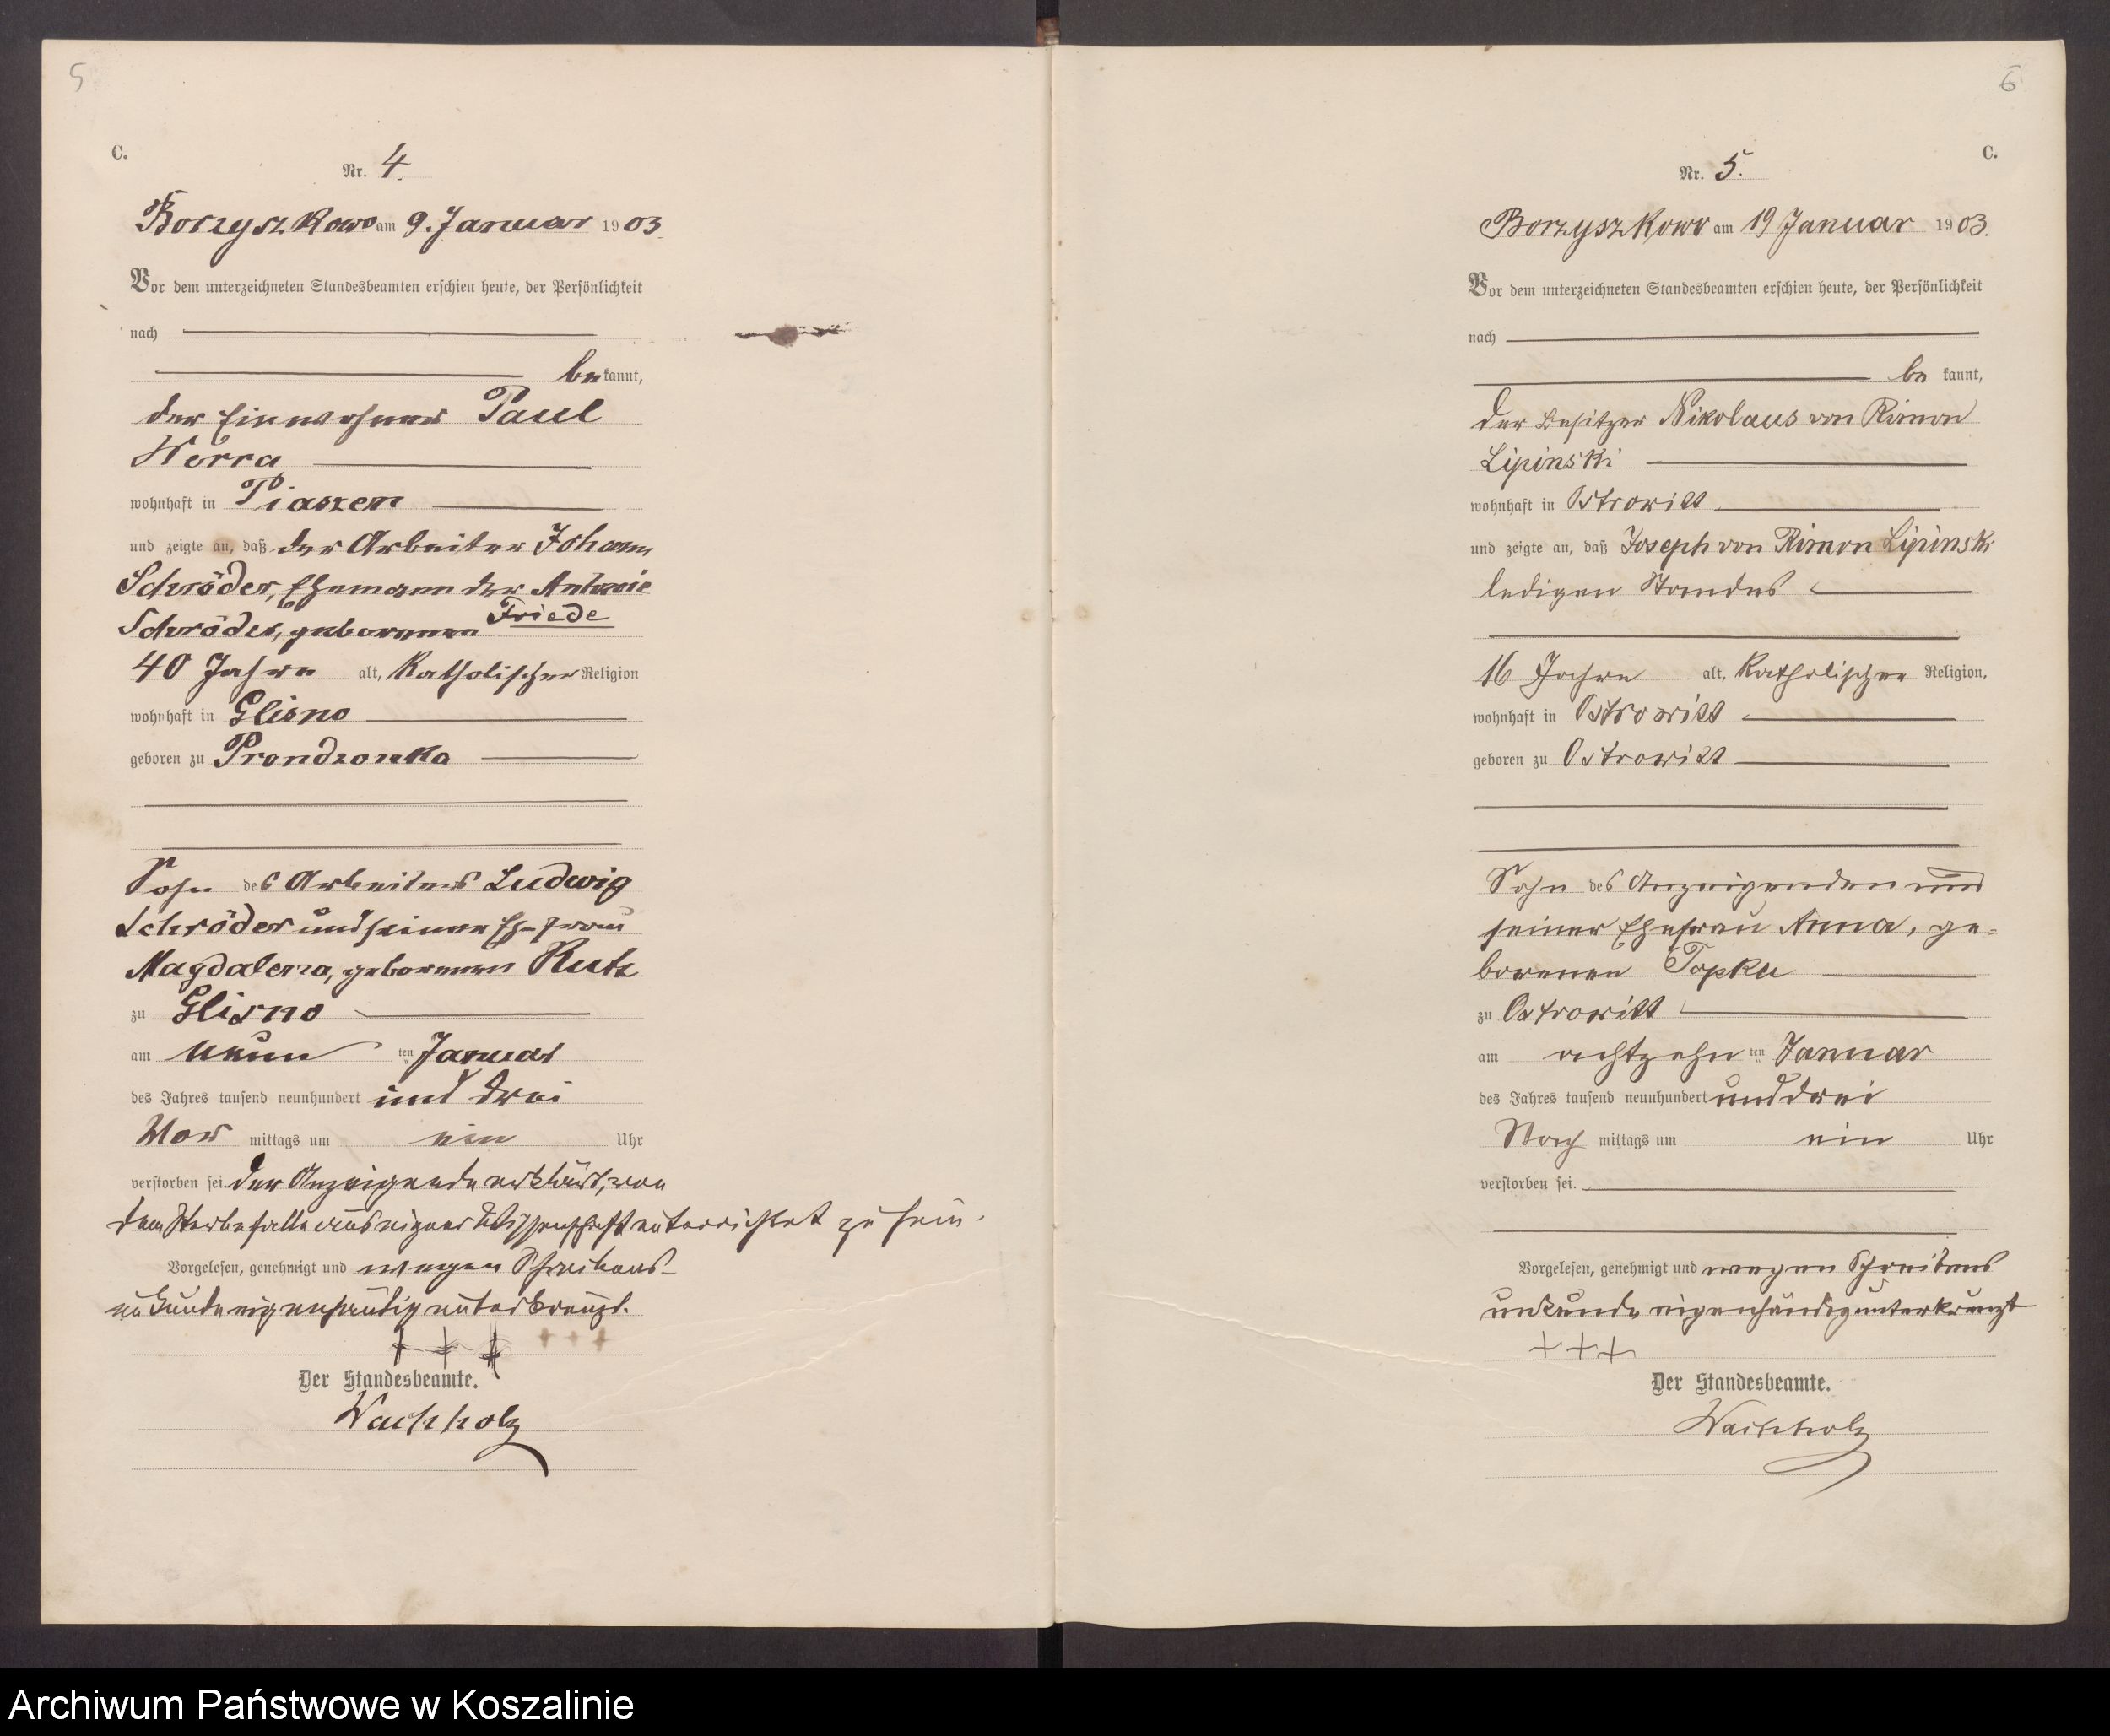 5
C.
Nr. 4.
Borzyszkowo am 9. Januar 1903.
Vor dem unterzeichneten Standesbeamten erschien heute, der Persönlichkeit
nach
be kannt,
der Einwohner Paul
Werra
wohnhaft in Piaszen
und zeigte an, daß der Arbeiter Johann
Schröder, Ehemann der Antonie
Schröder, geborenen Friede
40 Jahre alt, Katholischer Religion
wohnhaft in Glisno
geboren zu Prondzonka
Sohn des Arbeiters Ludwig
Schröder und seiner Ehefrau
Magdalena, geborenen Rutz
zu Glisno
am neun ten Januar
des Jahres tausend neunhundert und drei
Vor mittags um ein Uhr
verstorben sei. Der Anzeigende erklärt, von
dem Sterbefalle aus eigener Wissenschaft unterrichtet zu sein.
Vorgelesen, genehmigt und wegen Schreibens-
unkunde eigenhändig unterkreuzt.
+ + + + + +
Der Standesbeamte.
Wachholz
6
C.
Nr. 5.
Borzyszkowo am 19 Januar 1903.
Vor dem unterzeichneten Standesbeamten erschien heute, der Persönlichkeit
nach
be kannt,
der Besitzer Nikolaus von Rimon
Lipinski
wohnhaft in Ostrowitt
und zeigte an, daß Joseph von Rimon Lipinski
ledigen Standes
16 Jahre alt, Katholischer Religion,
wohnhaft in Ostrowitt
geboren zu Ostrowitt
Sohn des Anzeigenden und
seiner Ehefrau Anna, ge=
borenen Topka
zu Ostrowitt
am achtzehn ten Januar
des Jahres tausend neunhundert und drei
Nach mittags um ein Uhr
verstorben sei.
Vorgelesen, genehmigt und wegen Schreibens
unkunde eigenhändig unterkreuzt
+ + +
Der Standesbeamte.
Wachholz
Archiwum Państwowe w Koszalinie